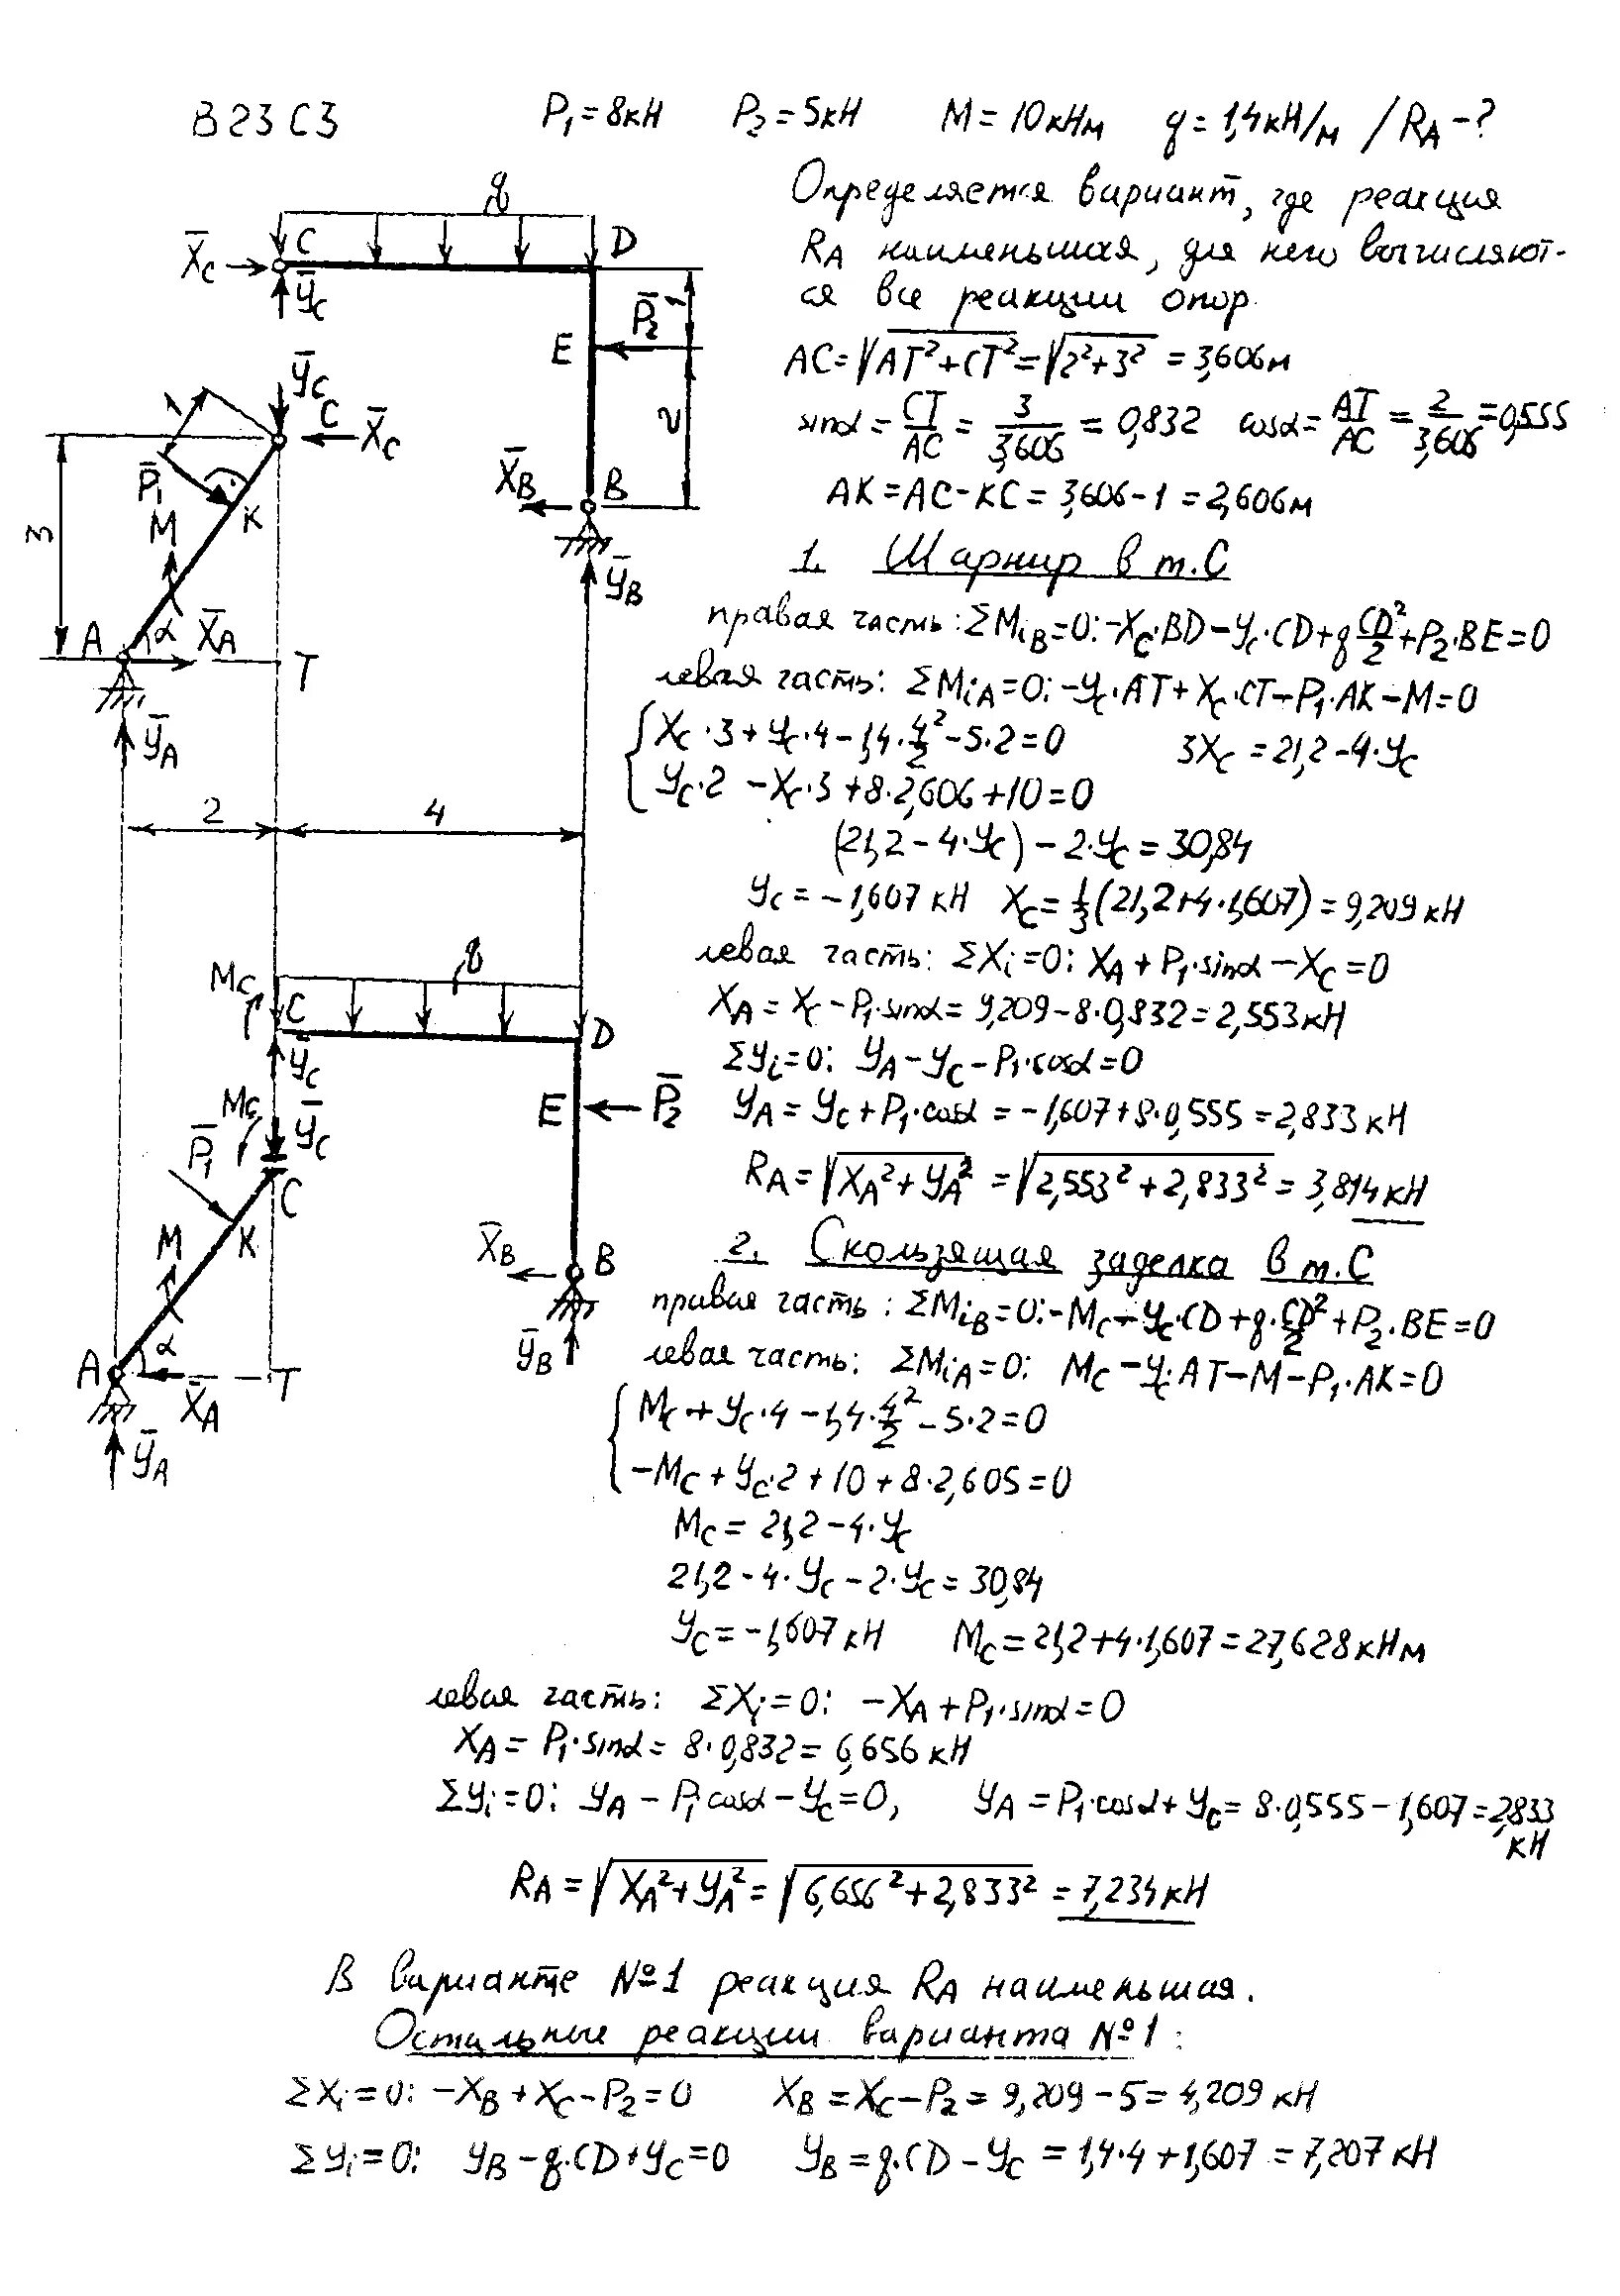 В23 С3    P₁=8кН    P₂=5кН    M=10кНм    q=1,4кН/м / R_A-?
Определяется вариант, где реакция
R_A наименьшая, для него вычисляют-
ся все реакции опор.
AC=√(AT²+CT²)=√(2²+3²)=3,606м
sinα=CT/AC=3/3,606=0,832    cosα=AT/AC=2/3,606=0,555
AK=AC-KC=3,606-1=2,606м
1. Шарнир в т.С
правая часть: ΣM_iB=0: -X_C·BD-Y_C·CD+q CD²/2+P₂·BE=0
левая часть: ΣM_iA=0: -Y_C·AT+X_C·CT-P₁·AK-M=0
X_C·3+Y_C·4-1,4·4²/2-5·2=0    3X_C=21,2-4·Y_C
Y_C·2-X_C·3+8·2,606+10=0
(21,2-4·Y_C)-2·Y_C=30,84
Y_C=-1,607кН    X_C=⅓(21,2+4·1,607)=9,209кН
левая часть: ΣX_i=0: X_A+P₁·sinα-X_C=0
X_A=X_C-P₁·sinα=9,209-8·0,832=2,553кН
ΣY_i=0: Y_A-Y_C-P₁·cosα=0
Y_A=Y_C+P₁·cosα=-1,607+8·0,555=2,833кН
R_A=√(X_A²+Y_A²)=√(2,553²+2,833²)=3,814кН
2. Скользящая заделка в т.С
правая часть: ΣM_iB=0: -M_C-Y_C·CD+q·CD²/2+P₂·BE=0
левая часть: ΣM_iA=0: M_C-Y_C·AT-M-P₁·AK=0
M_C+Y_C·4-1,4·4²/2-5·2=0
-M_C+Y_C·2+10+8·2,605=0
M_C=21,2-4·Y_C
21,2-4·Y_C-2·Y_C=30,84
Y_C=-1,607кН    M_C=21,2+4·1,607=27,628кНм
левая часть: ΣX_i=0: -X_A+P₁·sinα=0
X_A=P₁·sinα=8·0,832=6,656кН
ΣY_i=0: Y_A-P₁cosα-Y_C=0,    Y_A=P₁·cosα+Y_C=8·0,555-1,607=2,833
кН
R_A=√(X_A²+Y_A²)=√(6,656²+2,833²)=7,234кН
В варианте №1 реакция R_A наименьшая.
Остальные реакции варианта №1:
ΣX_i=0: -X_B+X_C-P₂=0    X_B=X_C-P₂=9,209-5=4,209кН
ΣY_i=0: Y_B-q·CD+Y_C=0    Y_B=q·CD-Y_C=1,4·4+1,607=7,207кН
q
X_C
C
D
Y_C
P₂
1
E
Y_C
C
X_C
1
2
P₁
X_B
B
K
M
3
Y_B
A
α
X_A
T
Y_A
2
4
q
M_C
C
D
Y_C
M_C
Y_C
E
P₂
P₁
C
M
K
X_B
B
Y_B
A
α
T
X_A
Y_A